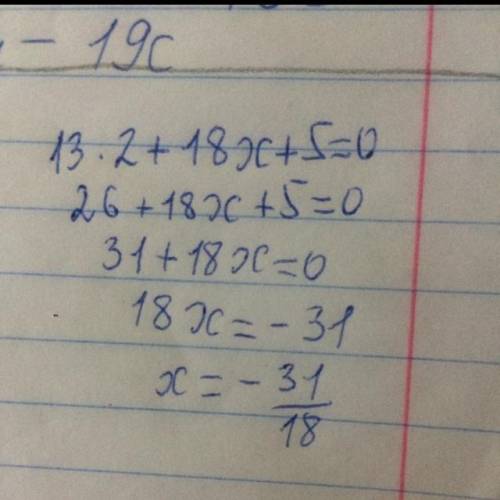 - 19c
13 · 2 + 18x + 5 = 0
26 + 18x + 5 = 0
31 + 18x = 0
18x = - 31
x = - 31/18